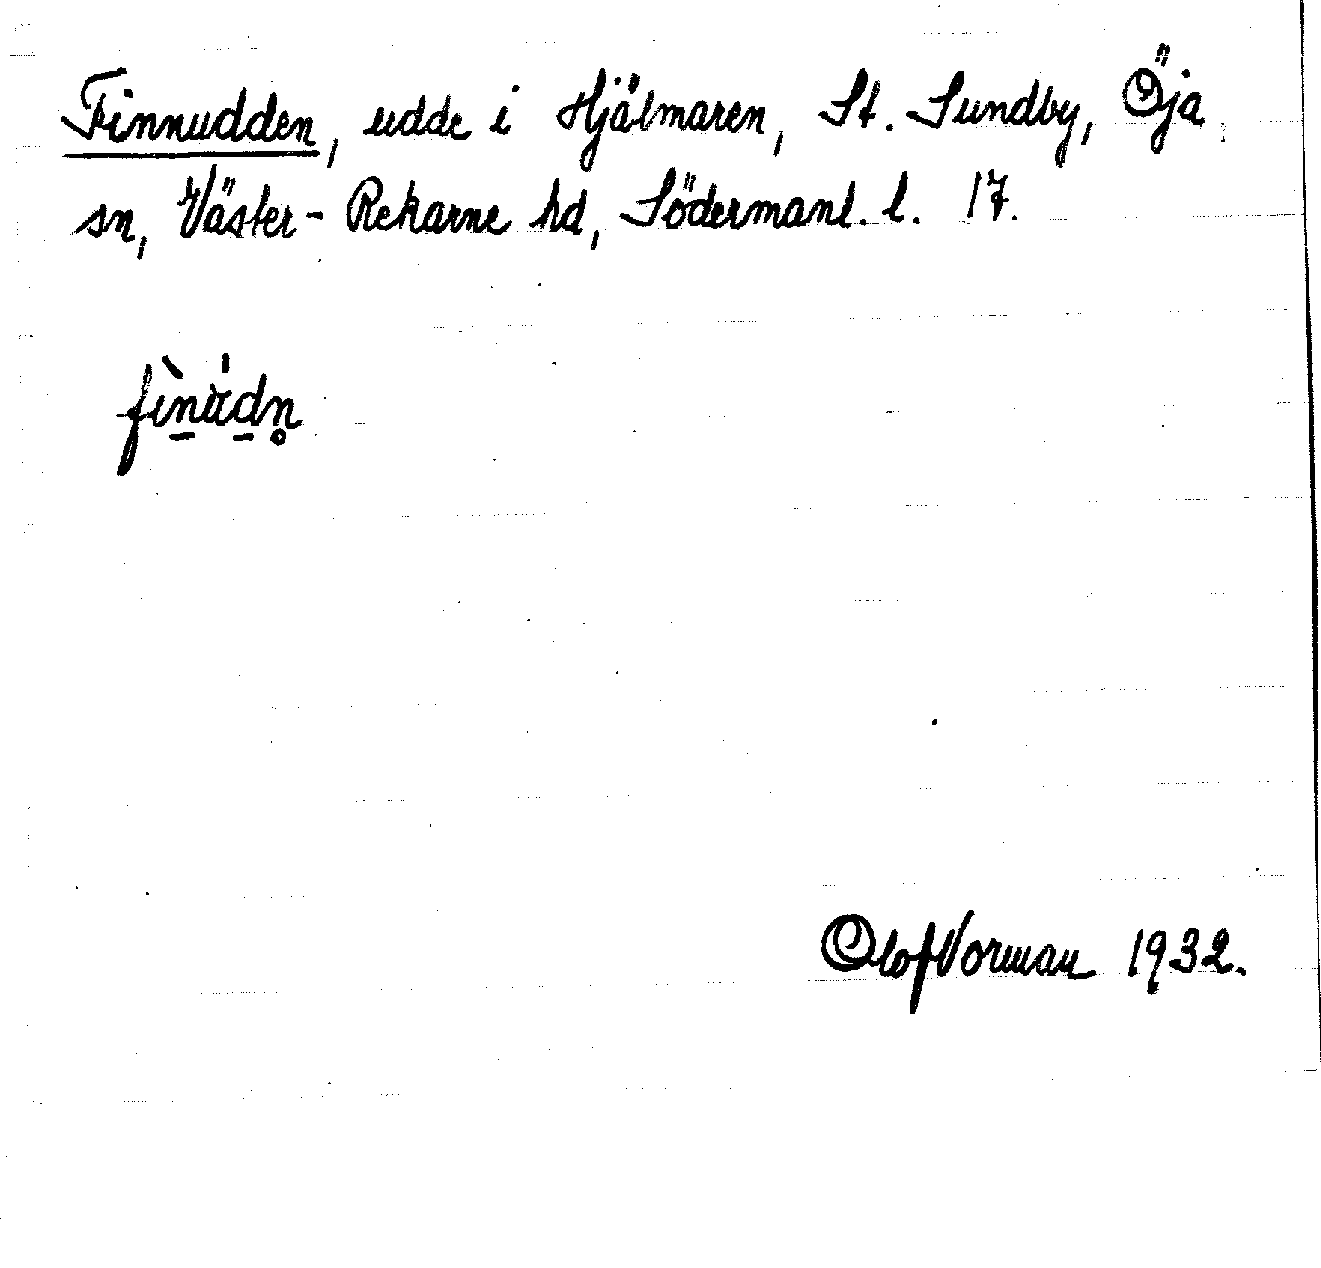 Finnudden, udde i Hjälmaren, St. Sundby, Öja
sn, Väster-Rekarne hd, Södermanl. l. 17.
Olof Vorman 1932.